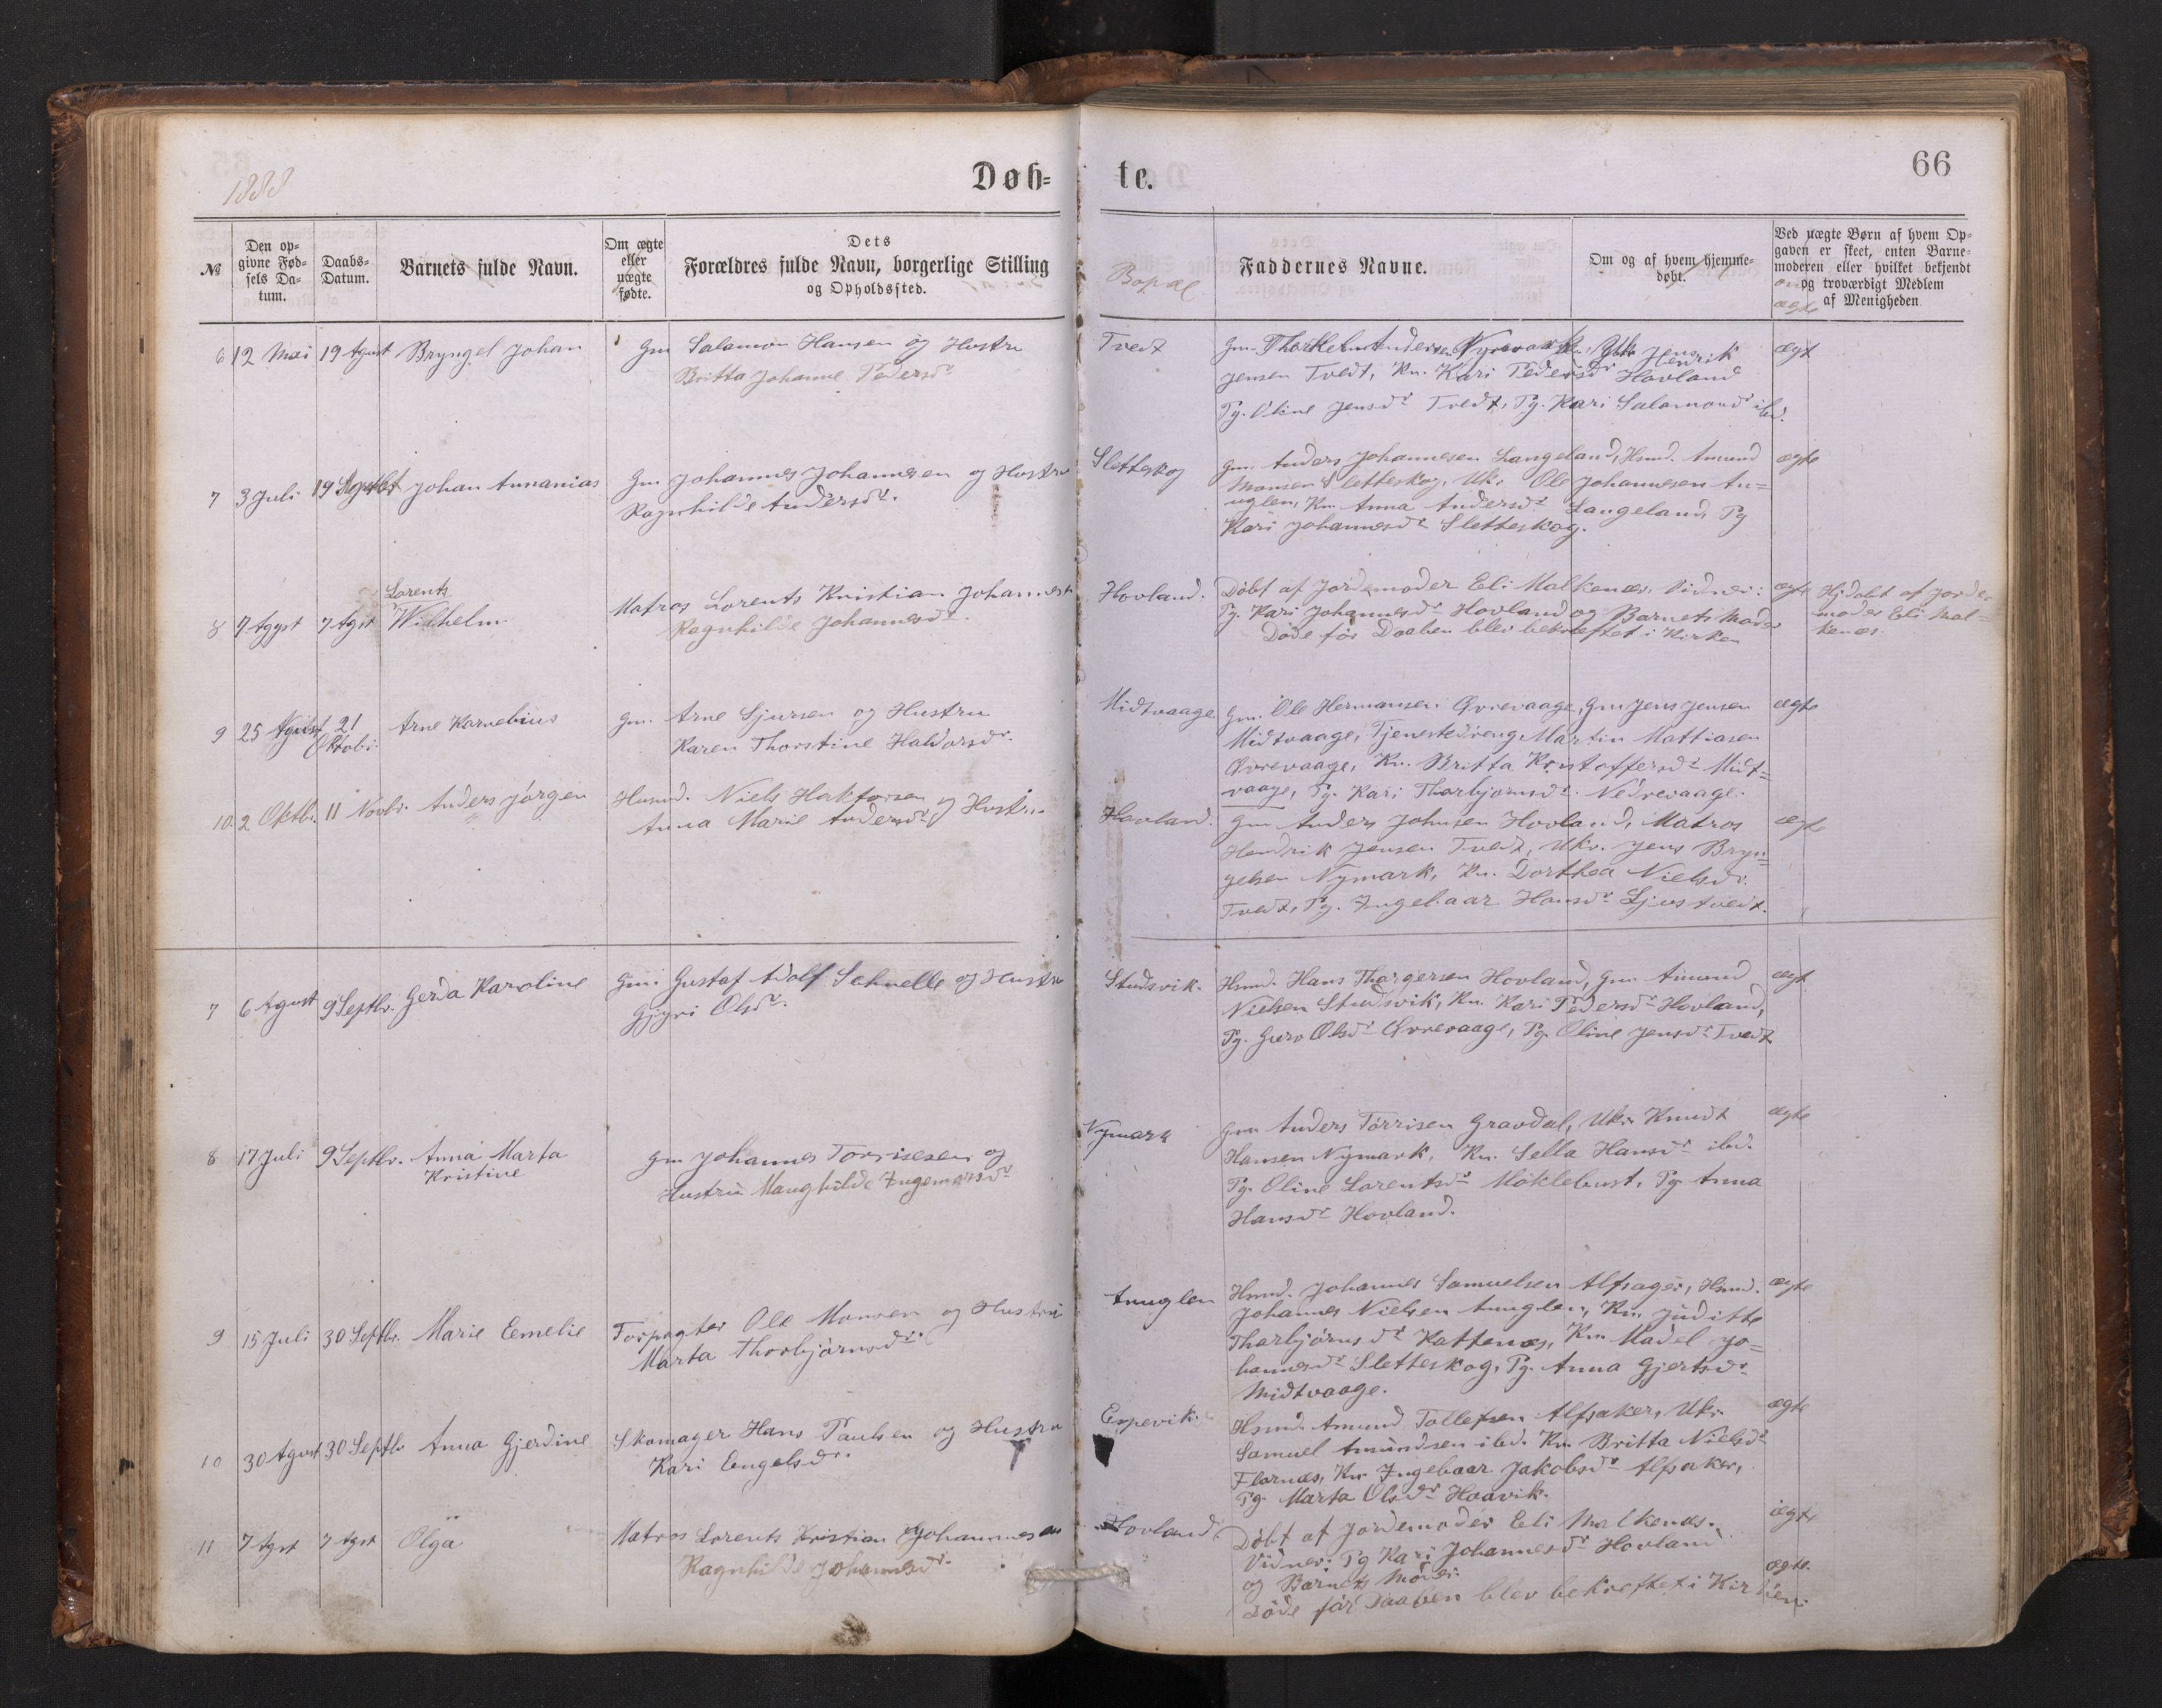 1888
Døb=
te.
66
№
Den op=
givne Fød=
sels Da=
tum.
Daabs=
Datum.
Barnets fulde Navn.
Om ægte
eller
uægte
fødte.
Dets
Forældres fulde Navn, borgerlige Stilling
og Opholdssted.
Bopæl
Faddernes Navne.
Om og af hvem hjemme=
døbt.
Ved uægte Børn af hvem Op=
gaven er skeet, enten Barne=
moderen eller hvilket bekjendt
og troværdigt Medlem
af Menigheden
om
ægte
6 12 Mai 19 Agust Bryngel Johan Gm Salamon Hansen og Hustru
Britta Johanne Pedersdr
Tvedt
Gm. Thorkel Andersen Jens Henrik
Jensen Tvedt, Kn. Kari Pedersdr Hovland
Pg. Oline Jensdr Tvedt, Pg. Kari Salamonsdr ibd.
ægt
7 3 Juli 19 Johan Annanias Gm Johannes Johannesen og Hustru
Ragnhilde Andersdr.
Sletteskog
Gm. Anders Johannesen Langeland, Hsmd. Amund
Monsen Sletteskog, Uk. Ole Johannesen An=
uglen, Kn Anna Andersdr Langeland, Pg
Kari Johannesdr Sletteskog.
ægte
8 7 Agust 7 Agst Lorents
Wilhelm
Matros Lorents Kristian Johannesen
Ragnhilde Johannesdr
Hovland.
Döbt af Jordemoder Eli Malkenæs. Vidner:
Pg. Kari Johannesdr Hovland og Barnets Moder
Döde før Daaben blev bekreftet i Kirken
ægte
Hjdöbt af Jorde-
moder Eli Mal=
kenæs.
9 25 Agust 21
Oktobr.
Arne Kornebius Gm. Arne Sjursen og Hustru
Karen Thorstine Haldorsdr.
Midtvaage
Gm. Ole Hermansen Øvrevaage, Gm Jens Jensen
Midtvaage, Tjenestedreng Martin Mattiasen
Øvrevaage, Kn. Britta Kristoffersdr Midt=
vaage, Pg. Kari Thorbjörnsdr. Nedrevaage.
ægte
10 2 Oktbr. 11 Novbr. Anders Jörgen Husmd. Niels Haktorsen og Hustru
Anna Marie Andersdr
Hovland.
Gm Anders Johnsen Hovland, Matros
Hendrik Jensen Tvedt, Ukr. Jens Bryn=
gelsen Nymark, Kn. Dorthea Nielsdr.
Tvedt, Pg. Ingebaar Hansdr
ægte
7 6 Agust 9 Septbr. Gerda Karoline Gm. Gustaf Adolf Schnelle og Hustru
Gjyri Olsdr.
Studsvik.
Hsmd. Hans Thorgersen Hovland, Gm. Amund
Nielsen Studsvik, Kn. Kari Pedersdr Hovland,
Pg. Guro Olsdr Øvrevaage, Pg. Oline Jensdr Tvedt
ægt
8 17 Juli 9 Septbr. Anna Marta
Kristine
Gm Johannes Torrisesen og
Hustru Manghilde Ingemarsdr
Nymark
Gm Anders Törrisen Gravdal, Ukr. Knudt
Hansen Nymark, Kn. Sella Hansdr ibd.
Pg. Oline Lorentsdr Möklebust, Pg Anna
Hansdr Hovland.
ægte
9 15 Juli 30 Septbr. Marie Eemelie Forpagter Ole Monsen og Hustru
Marta Thorbjörnsdr.
Anuglen
Hsmd. Johannes Samuelsen Alfsager, Hsmd.
Johannes Nielsen Anuglen, Kn. Juditte
Thorbjörnsdr Kattenæs, Kn. Madel Jo=
hannesdr Sletteskog, Pg. Anna Gjertsdr
Midtvaage.
ægte
10 30 Agust 30 Septbr Anna Gjerdine Skomager Hans Paulsen og Hustru
Kari Engelsdr.
Espevik.
Hsmd. Amund Tollefsen Alfsaker, Ukr.
Samuel Amundsen ibd. Kn Britta Nielsdr
Flornæs, Kn Ingebaar Jakobsdr Alfsaker,
Pg. Marta Olsdr Haavik.
ægte
11 7 Agst 7 Agst Olga Matros Lorents Kristian Johannesen
Ragnhilde Johannesdr.
Hovland
Döbt af Jordemoder Eli Malkenæs.
Vidner: Pg Kari Johannesdr Hovland
og Barnets Moder.
Döde för Daaben blev bekreftet i Kirken.
ægte
ægte.